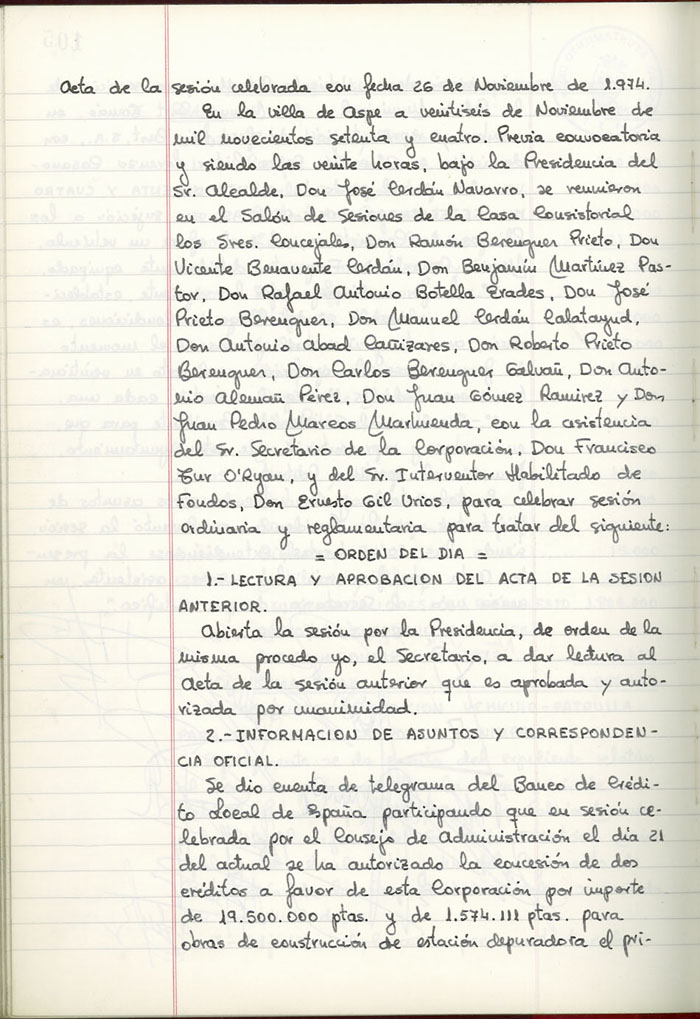 Acta de la sesión celebrada con fecha 26 de Noviembre de 1.974.
En la villa de Aspe a veintiseis de Noviembre de
mil novecientos setenta y cuatro. Previa convocatoria
y siendo las veinte horas, bajo la Presidencia del
Sr. Alcalde, Don José Cerdán Navarro, se reunieron
en el Salón de Sesiones de la Casa Consistorial
los Sres. Concejales, Don Ramón Berenguer Prieto, Don
Vicente Benavente Cerdán, Don Benjamín Martínez Pas-
tor, Don Rafael Antonio Botella Erades, Don José
Prieto Berenguer, Don Manuel Cerdán Calatayud,
Don Antonio Abad Cañizares, Don Roberto Prieto
Berenguer, Don Carlos Berenguer Galvañ, Don Anto-
nio Alemañ Pérez, Don Juan Gómez Ramirez y Don
Juan Pedro Marcos Marhuenda, con la asistencia
del Sr. Secretario de la Corporación, Don Francisco
Tur O'Ryan, y del Sr. Interventor Habilitado de
Fondos, Don Ernesto Gil Urios, para celebrar sesión
ordinaria y reglamentaria para tratar del siguiente:
= ORDEN DEL DIA =
1.- LECTURA Y APROBACION DEL ACTA DE LA SESION
ANTERIOR.
Abierta la sesión por la Presidencia, de orden de la
misma procedo yo, el Secretario, a dar lectura al
Acta de la sesión anterior que es aprobada y auto-
rizada por unanimidad.
2.- INFORMACION DE ASUNTOS Y CORRESPONDEN-
CIA OFICIAL.
Se dio cuenta de telegrama del Banco de Crédi-
to Local de España participando que en sesión ce-
lebrada por el Consejo de Administración el día 21
del actual se ha autorizado la concesión de dos
créditos a favor de esta Corporación por importe
de 19.500.000 ptas. y de 1.574.111 ptas. para
obras de construcción de estación depuradora el pri-